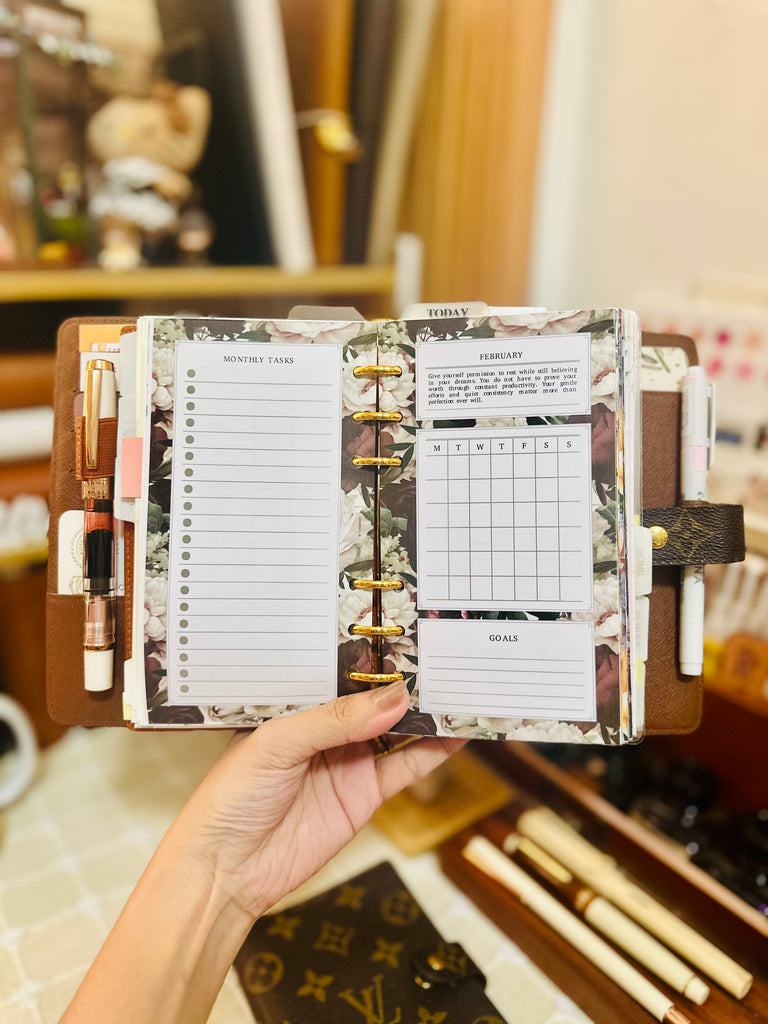 TODAY
MONTHLY TASKS
FEBRUARY
Give yourself permission to rest while still believing
in your dreams. You do not have to prove your
worth through constant productivity. Your gentle
efforts and quiet consistency matter more than
perfection ever will.
M T W T F S S
GOALS